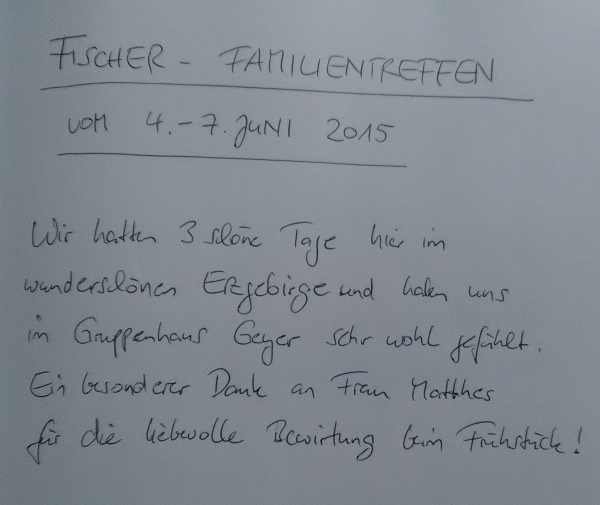 FISCHER - FAMILIENTREFFEN
VOM 4.-7. JUNI 2015
Wir hatten 3 schöne Tage hier im
wunderschönen Erzgebirge und haben uns
im Gruppenhaus Geyer sehr wohl gefühlt.
Ein besonderer Dank an Frau Matthes
für die liebevolle Bewirtung beim Frühstück!